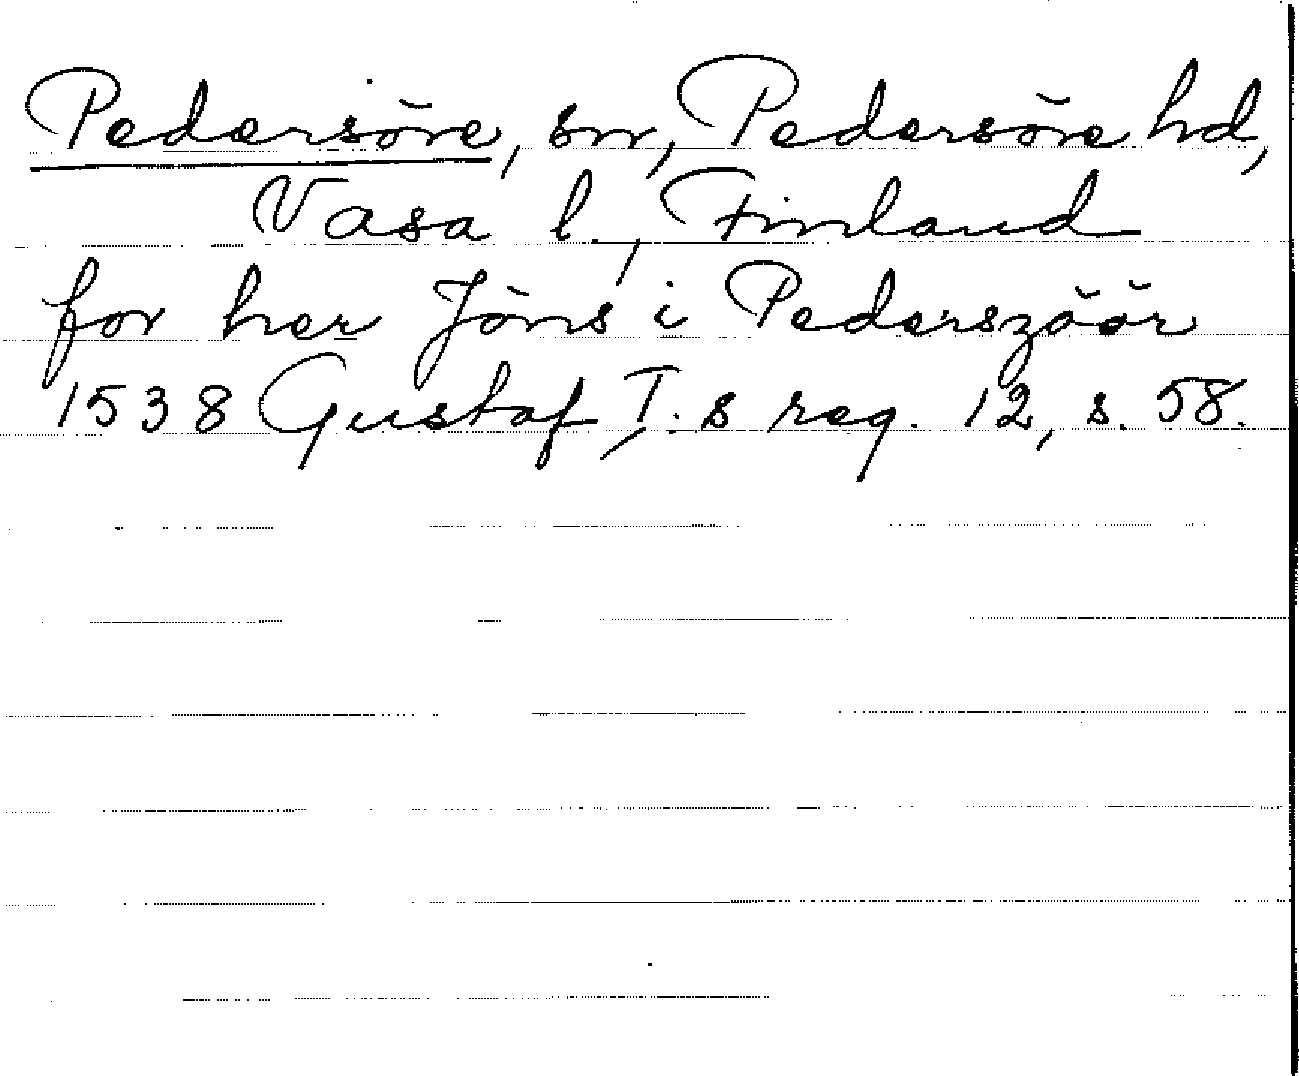 Pedersöre, sn, Pedersöre hd,
Vasa l., Finland
for her Jöns i Pederszöör
1538 Gustaf I:s reg. 12, s. 58.